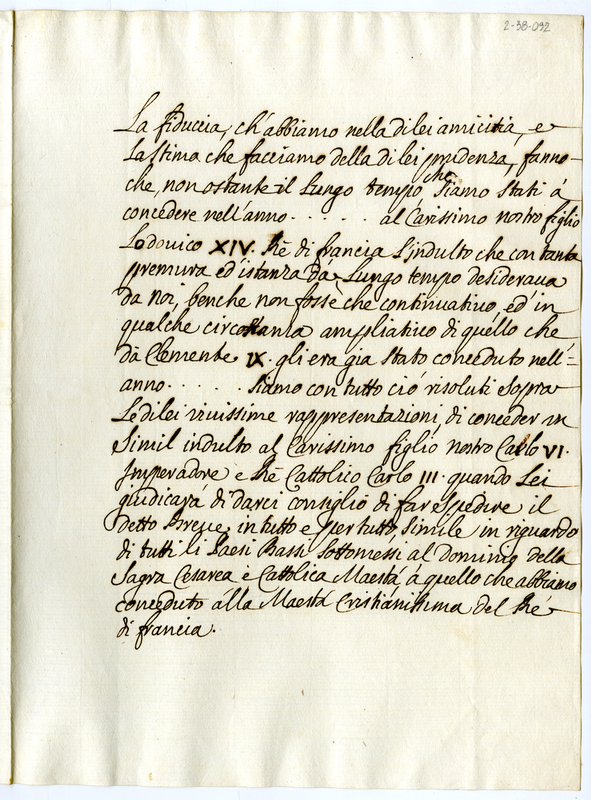 2-38-092
La fiducia, ch'abbiamo nella di lei amicitia, e
la stima che facciamo della di lei prudenza, fanno
che, non ostante il lungo tempo che siamo stati á
concedere nell'anno . . . . . al Carissimo nostro figlio
Lodovico XIV. Rè di francia l'indulto che con tanta
premura ed istanza dà lungo tempo desiderava
da noi, benche non fosse che continuativo, ed in
qualche circostanza ampliativo di quello che
dà Clemente IX. gli era gia stato conceduto nell'=
anno . . . . . siamo con tutto ciò risoluti sopra
Le di lei vivissime rappresentazioni, di conceder un
simil indulto al Carissimo figlio nostro Carlo VI.
Imperadore e Rè Cattolico Carlo III. quando Lei
giudicarà di darci consiglio di far espedire il
detto Breve in tutto e per tutto, simile in riguardo
di tutti li Paesi Bassi sottomessi al Dominio della
Sagra Cesarea è Cattolica Maestá á quello che abbiamo
conceduto alla Maestá Cristianissima del Rè
di francia.